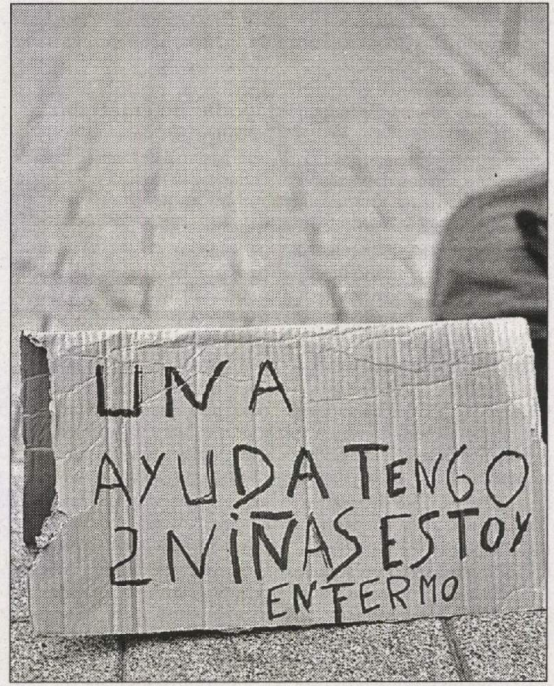 UNA
AYUDA TENGO
2 NiÑAS ESTOY
ENFERMO